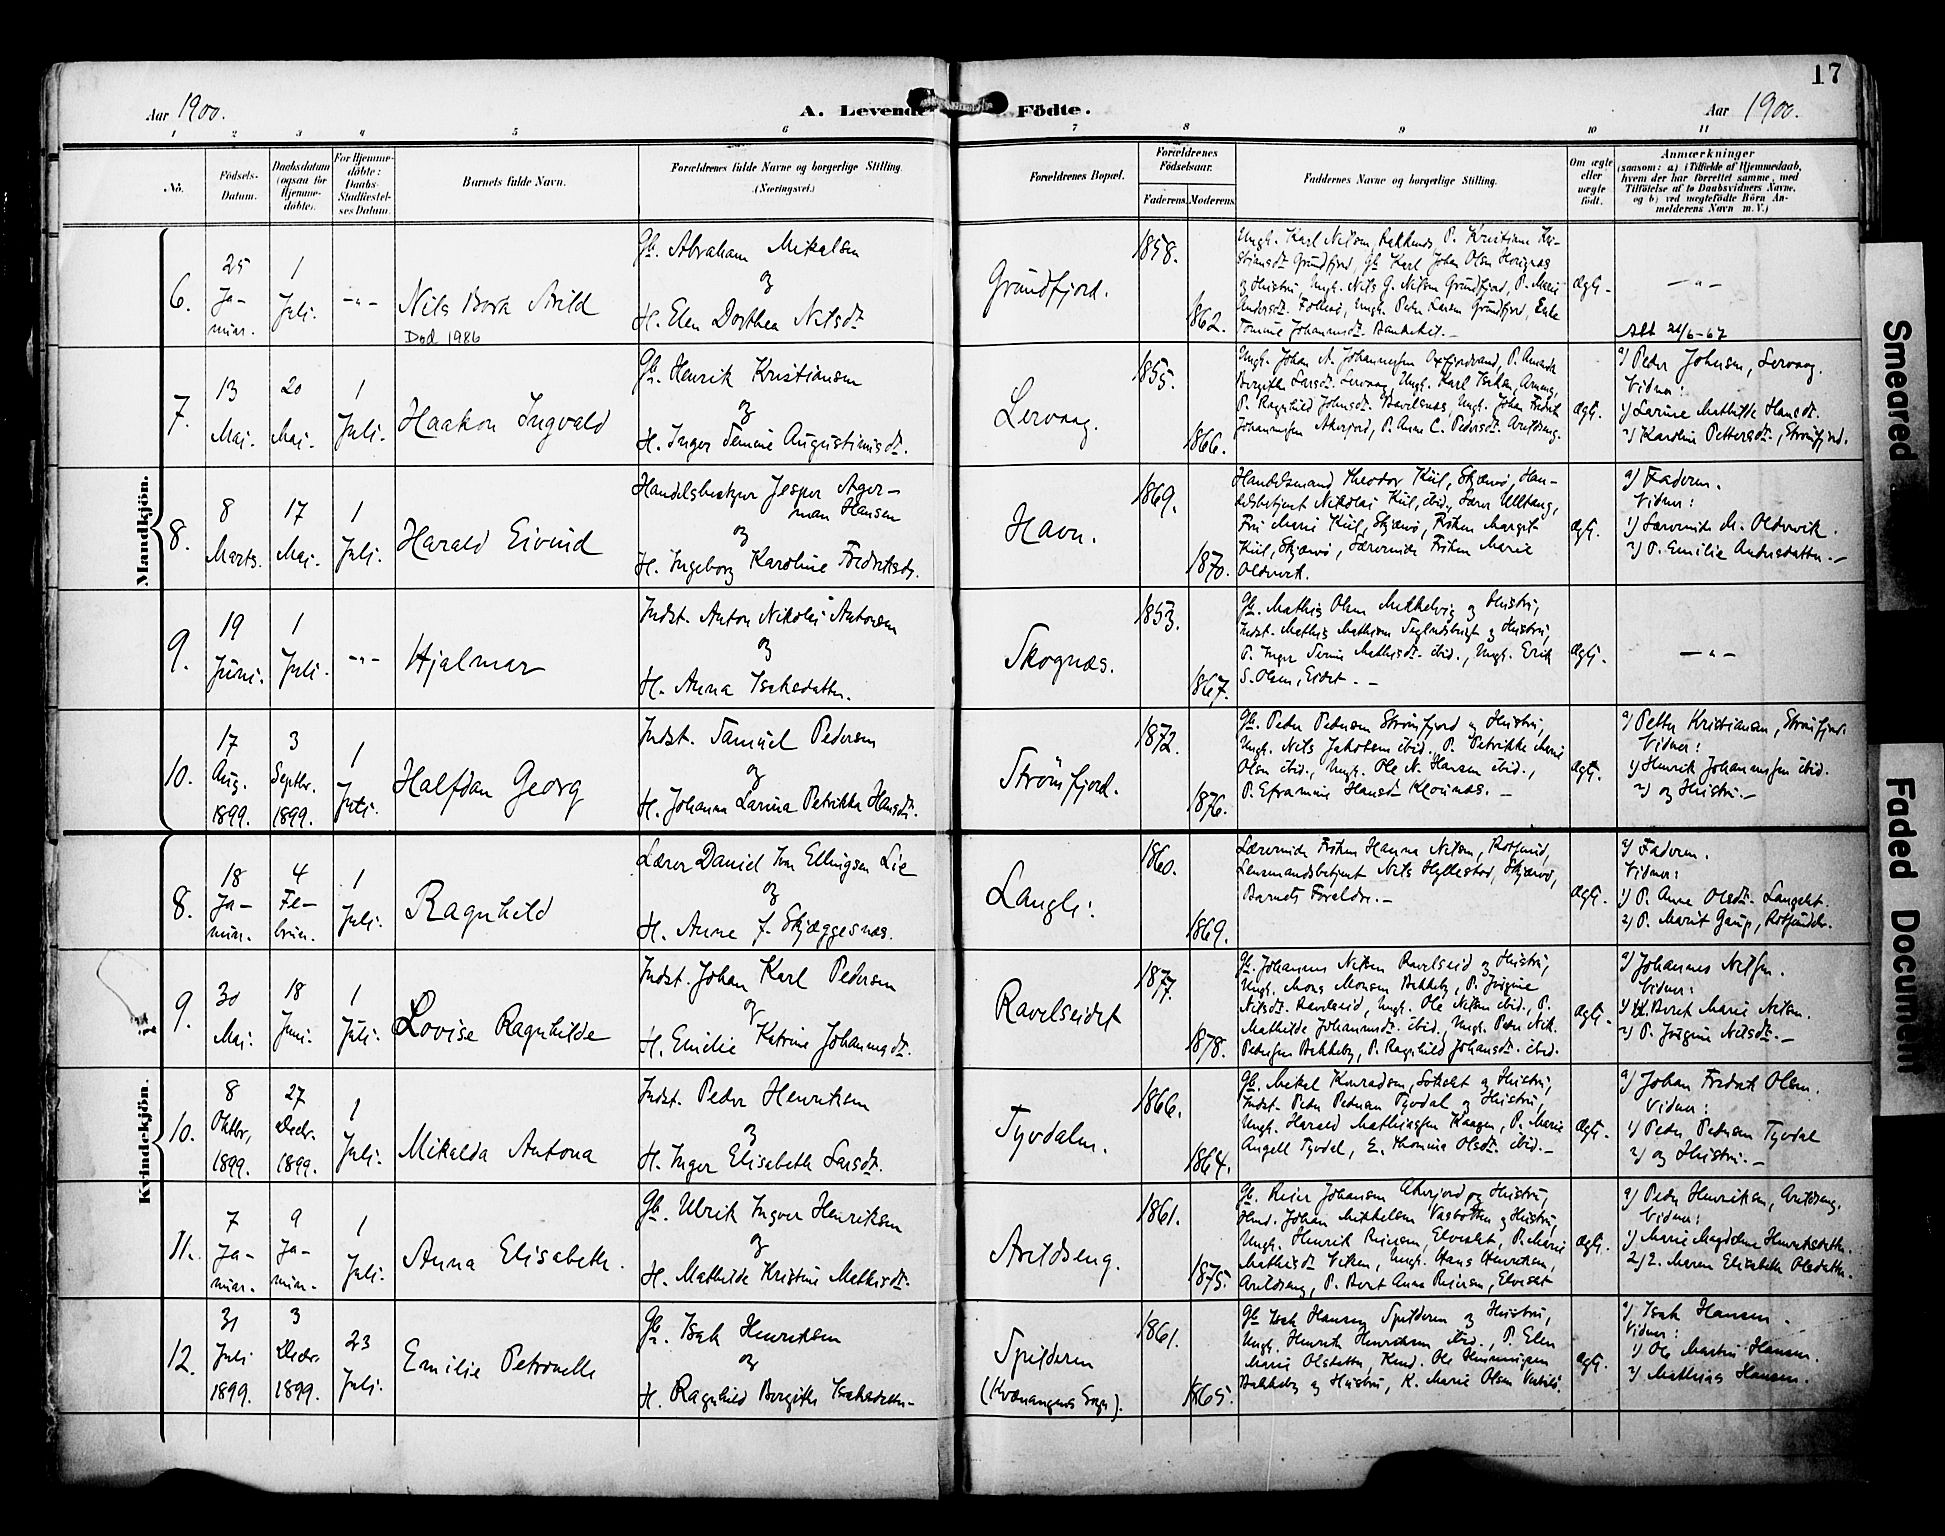 17
Aar 1900.
A. Levende Födte.
Aar 1900.
1 2 3 4 5 6 7 8 9 10 11
No.
Födsels-
Datum.
Daabsdatum
(ogsaa for
Hjemme-
döbte).
For Hjemme-
döbte:
Daabs-
Stadfæstel-
ses Datum.
Barnets fulde Navn.
Forældrenes fulde Navne og borgerlige Stilling.
(Næringsvei.)
Forældrenes Bopæl.
Forældrenes
Födselsaar.
Faderens. Moderens.
Faddernes Navne og borgerlige Stilling.
Om ægte
eller
uægte
födt.
Anmærkninger
(saasom: a) i Tilfælde af Hjemmedaab,
hvem der har forrettet samme, med
Tilföielse af to Daabsvidners Navne,
og b) ved uægtefödte Börn An-
melderens Navn m. V.)
Mandkjön.
6.
25
Ja-
nuar.
1
Juli.
-"-
Nils Bora Arild
Død 1986
Gb. Abraham Mikalsen
og
H. Elen Dorthea Nilsdt.
Grundfjord.
1858.
1862.
Ungk. Karl Nilsen, P. Kristiane Kri-
stiansdt. Grundfjord, Gb. Karl Johan Olsen
og Hustru, Ungk. Nils G. Nilsen Grundfjord, P. Marie
Andersdt. Ungk. Peder Larsen Grundfjord, Enke
Tomine Johannesdt.
ægt.
-"-
Att 26/6-67
7.
13
Mai.
20
Mai.
1
Juli.
Haakon Ingvald
Gb. Henrik Kristiansen
og
H. Inger Semine Augustinusdt.
Lervaag.
1855.
1866.
Ungk. Johan A. Johannesen Oxfjordvand, P. Amanda
Birgitte Larsdt. Lervaag, Ungk. Karl Isaksen,
P. Ragnhild Johnsdt. Ravelsnæs, Ungk. Johan Fredrik
Johannesen Akerfjord, P. Anne C. Pedersdt. Arildseng.
ægt.
a) Peder Johnsen, Lervaag.
Vidner:
1) Larine Mathilde Hansdt.
2) Karoline Pettersdt., Strömfjord.
8.
8
Marts.
17
Mai.
1
Juli.
Harald Eivind
Handelsbestyrer Jesper Ager-
man Hansen
og
H. Ingeborg Karoline Fredriksdt.
Havn.
1869.
1870.
Handelsmand Theodor Kiil, Skjærvö, Han-
delsbetjent Nikolai Kiil, ibid., Lærer Ulltang,
Fru Marie Kiil, Skjærvö, Fröken Margit
Kiil, Skjærvö, Lærerinde Fröken Marie
Oldervik.
ægt.
a) Faderen.
Vidner:
1) Lærerinde M. Oldervik.
2) P. Emilie Andersdatter.-
9.
19
Juni.
1
Juli.
-"-
Hjalmar
Indst. Anton Nikolai Antonsen
og
H. Anna Isaksdatter.
Skognæs.
1853.
1867.
Gb. Mathis Olsen Mikkelvig og Hustru,
Indst. Mathis Mathisen og Hustru,
P. Inger Serine Mathisdt. ibid., Ungk. Erik
S. Olsen, Eidet.-
ægt.
-"-
10.
17
Aug.
1899.
3
Septbr.
1899.
1
Juli.
Halfdan Georg
Indst. Samuel Pedersen
og
H. Johanna Larina Petrikka Hansdt.
Strömfjord.
1872.
1876.
Gb. Peder Pedersen Strömfjord og Hustru,
Ungk. Nils Jakobsen ibid., P. Petrikke Marie
Olsen ibid., Ungk. Ole N. Hansen ibid.,
P. Eframine Hansdt. Klöunæs.-
ægt.
a) Petter Kristiansen, Strömfjord.
Vidner:
1) Henrik Johannessen ibid.
2) og Hustru.-
Kvindekjön.
8.
18
Ja-
nuar.
4
Fe-
bruar.
1
Juli.
Ragnhild
Lærer Daniel Ivar Ellingsen Lie
og
H. Anne f. Skjæggesnæs.
Langsl.
1860.
1869.
Lærerinde Fröken Hanna Nilsen, Rotsund,
Lensmandsbetjent Nils Hyllestad, Skjærvö,
Barnets Forældre.-
ægt.
a) Faderen.
Vidner:
1) P. Anne Olsdt. Langslet.
2) P. Marit Gaup, Rotsundelv.
9.
30
Mai.
18
Juni.
1
Juli.
Lovise Ragnhilde
Indst. Johan Karl Pedersen
og
H. Emilie Katrine Johannesdt.
Ravelseidet
1877.
1878.
Gb. Johannes Nilsen Ravelseid og Hustru,
Ungk. Mons Monsen Bakkeby, P. Jörgine
Nilsdt. Ravelseid, Ungk. Ole Nilsen ibid., P.
Mathilde Johannesdt. ibid., Ungk. Peder Nik.
Pedersen Bakkeby, P. Ragnhild Johansdt. ibid.
ægt.
a) Johannes Nilsen.
Vidner:
1) H. Beret Marie Nilsen.
2) P. Jörgine Nilsdt.-
10.
8
Oktbr.,
1899.
27
Decbr.
1899.
1
Juli.
Mikalda Antona
Indst. Peder Henriksen
og
H. Inger Elisabeth Larsdt.
Tyvdalen.
1866.
1864.
Gb. Mikal Konradsen, og Hustru,
Indst. Peder Pedersen Tyvdal og Hustru,
Ungk. Harald Mathiassen Kaagen, P. Marie
Angell Tyvdal, E. Thomine Olsdt. ibid.-
ægt.
a) Johan Fredrik Olsen.
Vidner:
1) Peder Pedersen Tyvdal
2) og Hustru.-
11.
7
Ja-
nuar.
9
Ja-
nuar.
1
Juli.
Anna Elisabeth.
Gb. Ulrik Ingvor Henriksen
og
H. Mathilde Kristine Mathisdt.
Arildseng.
1861.
1875.
Gb. Reier Johansen Akerfjord og Hustru,
Johan Mikkelsen Vasbotten og Hustru,
Ungk. Henrik Reiersen, Elveslet, P. Marie
Mathisdt. Viken, Ungk. Hans Henriksen,
Arildseng, P. Berit Anna Reiersen, Elveslet
ægt.
a) Peder Henriksen, Arildseng.
Vidner:
1) Marie Magdalene Henriksdatter.
2) E. Maren Elisabeth Olsdatter.
12.
31
Juli
1899.
3
Decbr.
1899.
23
Juli.
Emilie Petronelle
Gb. Isak Henriksen
og
H. Ragnhild Birgitte Isaksdatter.
Spilderen
(Kvænangens Sogn).
1861.
1865.
Gb. Isak Hansen, Spilderen og Hustru,
Ungk. Henrik Henriksen ibid., P. Elen
Marie Olsdatter, Ole Henningsen
Bakkeby og Hustru, K. Marie Olsen
ægt.
a) Isak Hansen.
Vidner:
1) Ole Martin Hansen.
2) Mathias Hansen.
Smeared
Faded Document